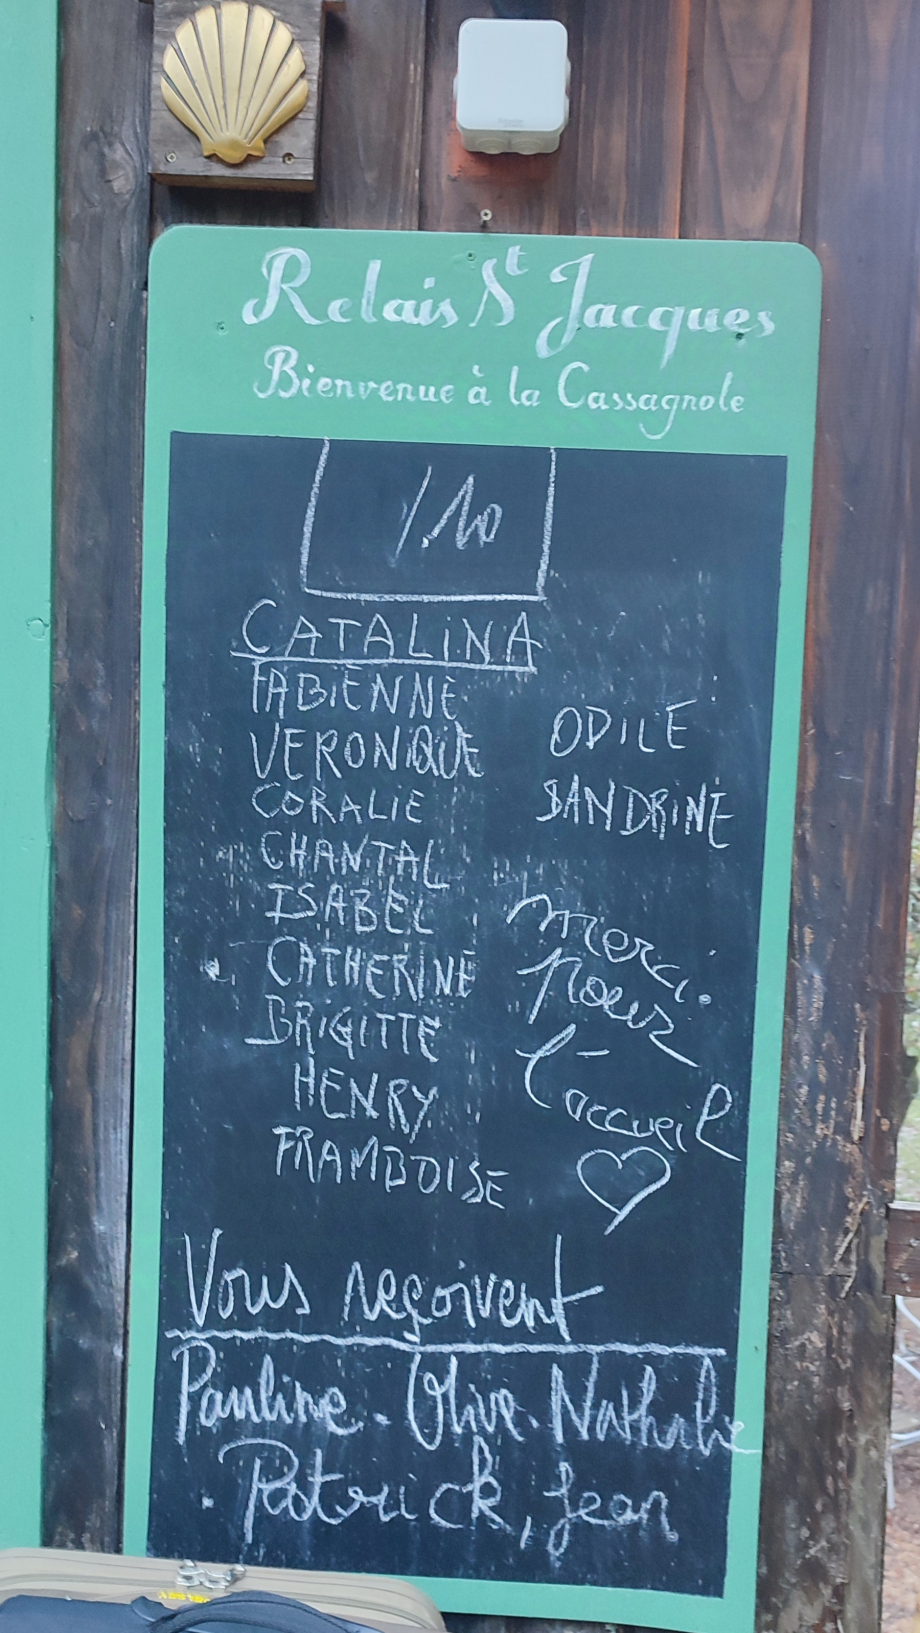 Relais St Jacques
Bienvenue à la Cassagnole
/.10
CATALINA
FABIENNE
VERONIQUE
CORALIE
CHANTAL
ISABEL
CATHERINE
BRIGITTE
HENRY
FRAMBOISE
ODILE
SANDRINE
merci.
pour
l'accueil
Vous reçoivent
Pauline. Olive. Nathalie
. Patrick, Jean